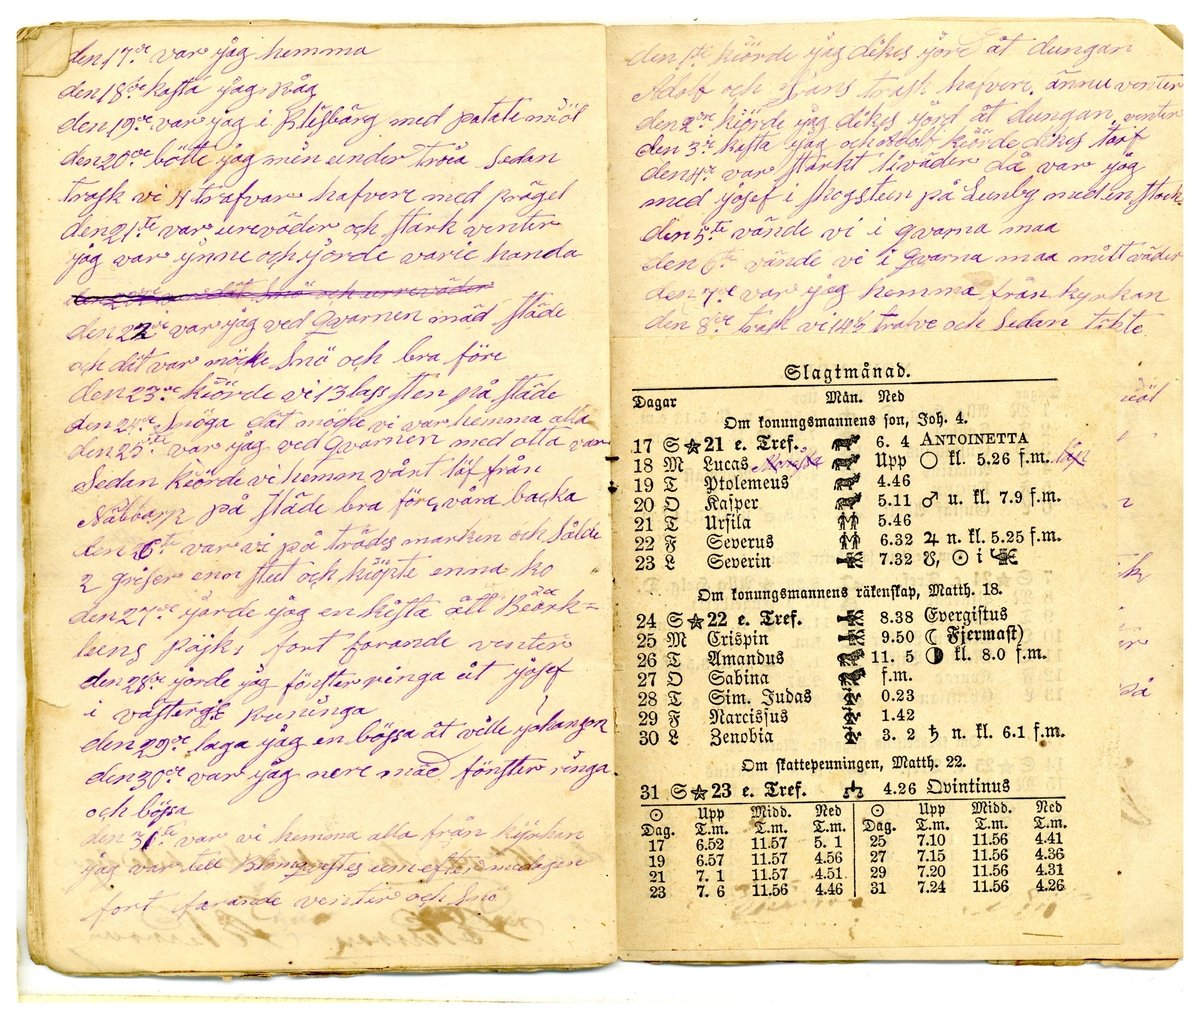 den 17de var jag hemma
den 18de kasta jag Råg
den 19de var jag i med patate mjöl
den 20de bötte jag min under tröia Sedan
trask vi 4 trafvar hafvere med prägel
den 21te var ureväder och stark venter
jag var ynne och jorde varie handa
den 22re var jag ved Qvarnen mäd släde
och dät var möcke Snö och bra före
den 23re kiörde vi 13 lass sten på släde
den 24re Snöga dät möcke vi var hemma alla
den 25te var jag ved Qvarnen med alla var
Sedan kiörde vi hemm vårt löf från
på släde bra före våra backa
den 6te var vi på trädes marken och Sålde
2 griser enor stut och kiöpte enna ko
den 27de jorde jag en kista ått Beörk=
lens Påjks fort forande venter
den 28de jorde jag fönster ringa åt josef
i Kuninga
den 29de laga jag en bössa åt ville
den 30de var jag nere mäd fönster ringa
och bössa
den 31te var vi hemma alla från kyrken
jag var tell em efter medagen
fort farande venter och Snö
den 1ste kiörde jag dikes jord åt dungan
Adolf och trask hafvere, ännu venter
den 2re kiörde jag dikes jord åt dungan, venter
den 3re kasta jag och Adolf kiörde dikes torf
den 4re var starkt Uväder då var jag
med josef i Skogsten på Lunby med en stock
den 5te vände vi i qvarna maa
den 6te vände vi i qvarna maa mitt väder
den 7de var jag hemma från kyrkan
den 8de trask vi 14½ trafve och Sedan tikte
Slagtmånad.
Dagar Mån. Ned
Om konungsmannens son, Joh. 4.
17 S ☆ 21 e. Tref. 6. 4 ANTOINETTA
18 M Lucas Upp ○ kl. 5.26 f.m.
19 T Ptolemeus 4.46
20 O Kasper 5.11 ♂ u. kl. 7.9 f.m.
21 T Ursila 5.46
22 F Severus 6.32 ♃ n. kl. 5.25 f.m.
23 L Severin 7.32 ☋, ☉ i
Om konungsmannens räkenskap, Matth. 18.
24 S ☆ 22 e. Tref. 8.38 Evergistus
25 M Crispin 9.50 ☾ Fjermast)
26 T Amandus 11. 5 ◑ kl. 8.0 f.m.
27 O Sabina f.m.
28 T Sim. Judas 0.23
29 F Narcissus 1.42
30 L Zenobia 3. 2 ♄ n. kl. 6.1 f.m.
Om skattepenningen, Matth. 22.
31 S ☆ 23 e. Tref. 4.26 Qvintinus
☉ Upp Midd. Ned ☉ Upp Midd. Ned
Dag. T.m. T.m. T.m. Dag. T.m. T.m. T.m.
17 6.52 11.57 5. 1 25 7.10 11.56 4.41
19 6.57 11.57 4.56 27 7.15 11.56 4.36
21 7. 1 11.57 4.51 29 7.20 11.56 4.31
23 7. 6 11.56 4.46 31 7.24 11.56 4.26